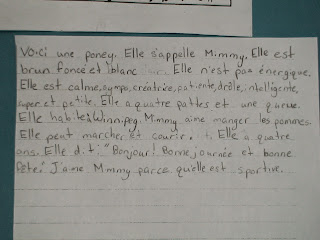 Voici une poney. Elle s'appelle Mimmy. Elle est
brun foncé et blanc. Elle n'est pas énergique.
Elle est calme, sympa, créatrice, patiente, drôle, intelligente,
super et petite. Elle a quatre pattes et une queue.
Elle habite à Winnipeg. Mimmy aime manger les pommes.
Elle peut marcher et courir. Elle a quatre
ans. Elle dit: "Bonjour! Bonne journée et bonne
fête." J'aime Mimmy parce qu'elle est sportive.